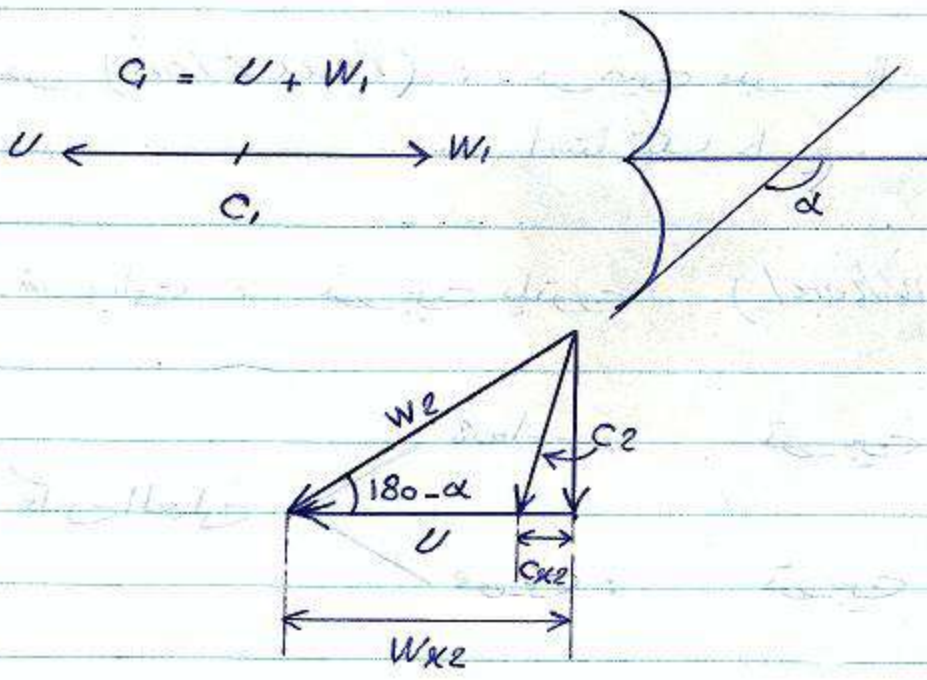 C1 = U + W1
U W1
C1
α
W2
C2
180-α
U
Cx2
Wx2